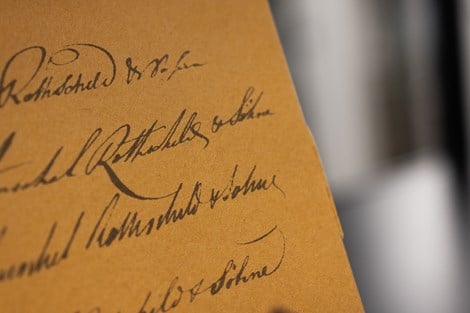 Rothschild &
mschel Rothschild & Söhne
mschel Rothschild & Söhne
schild & Söhne